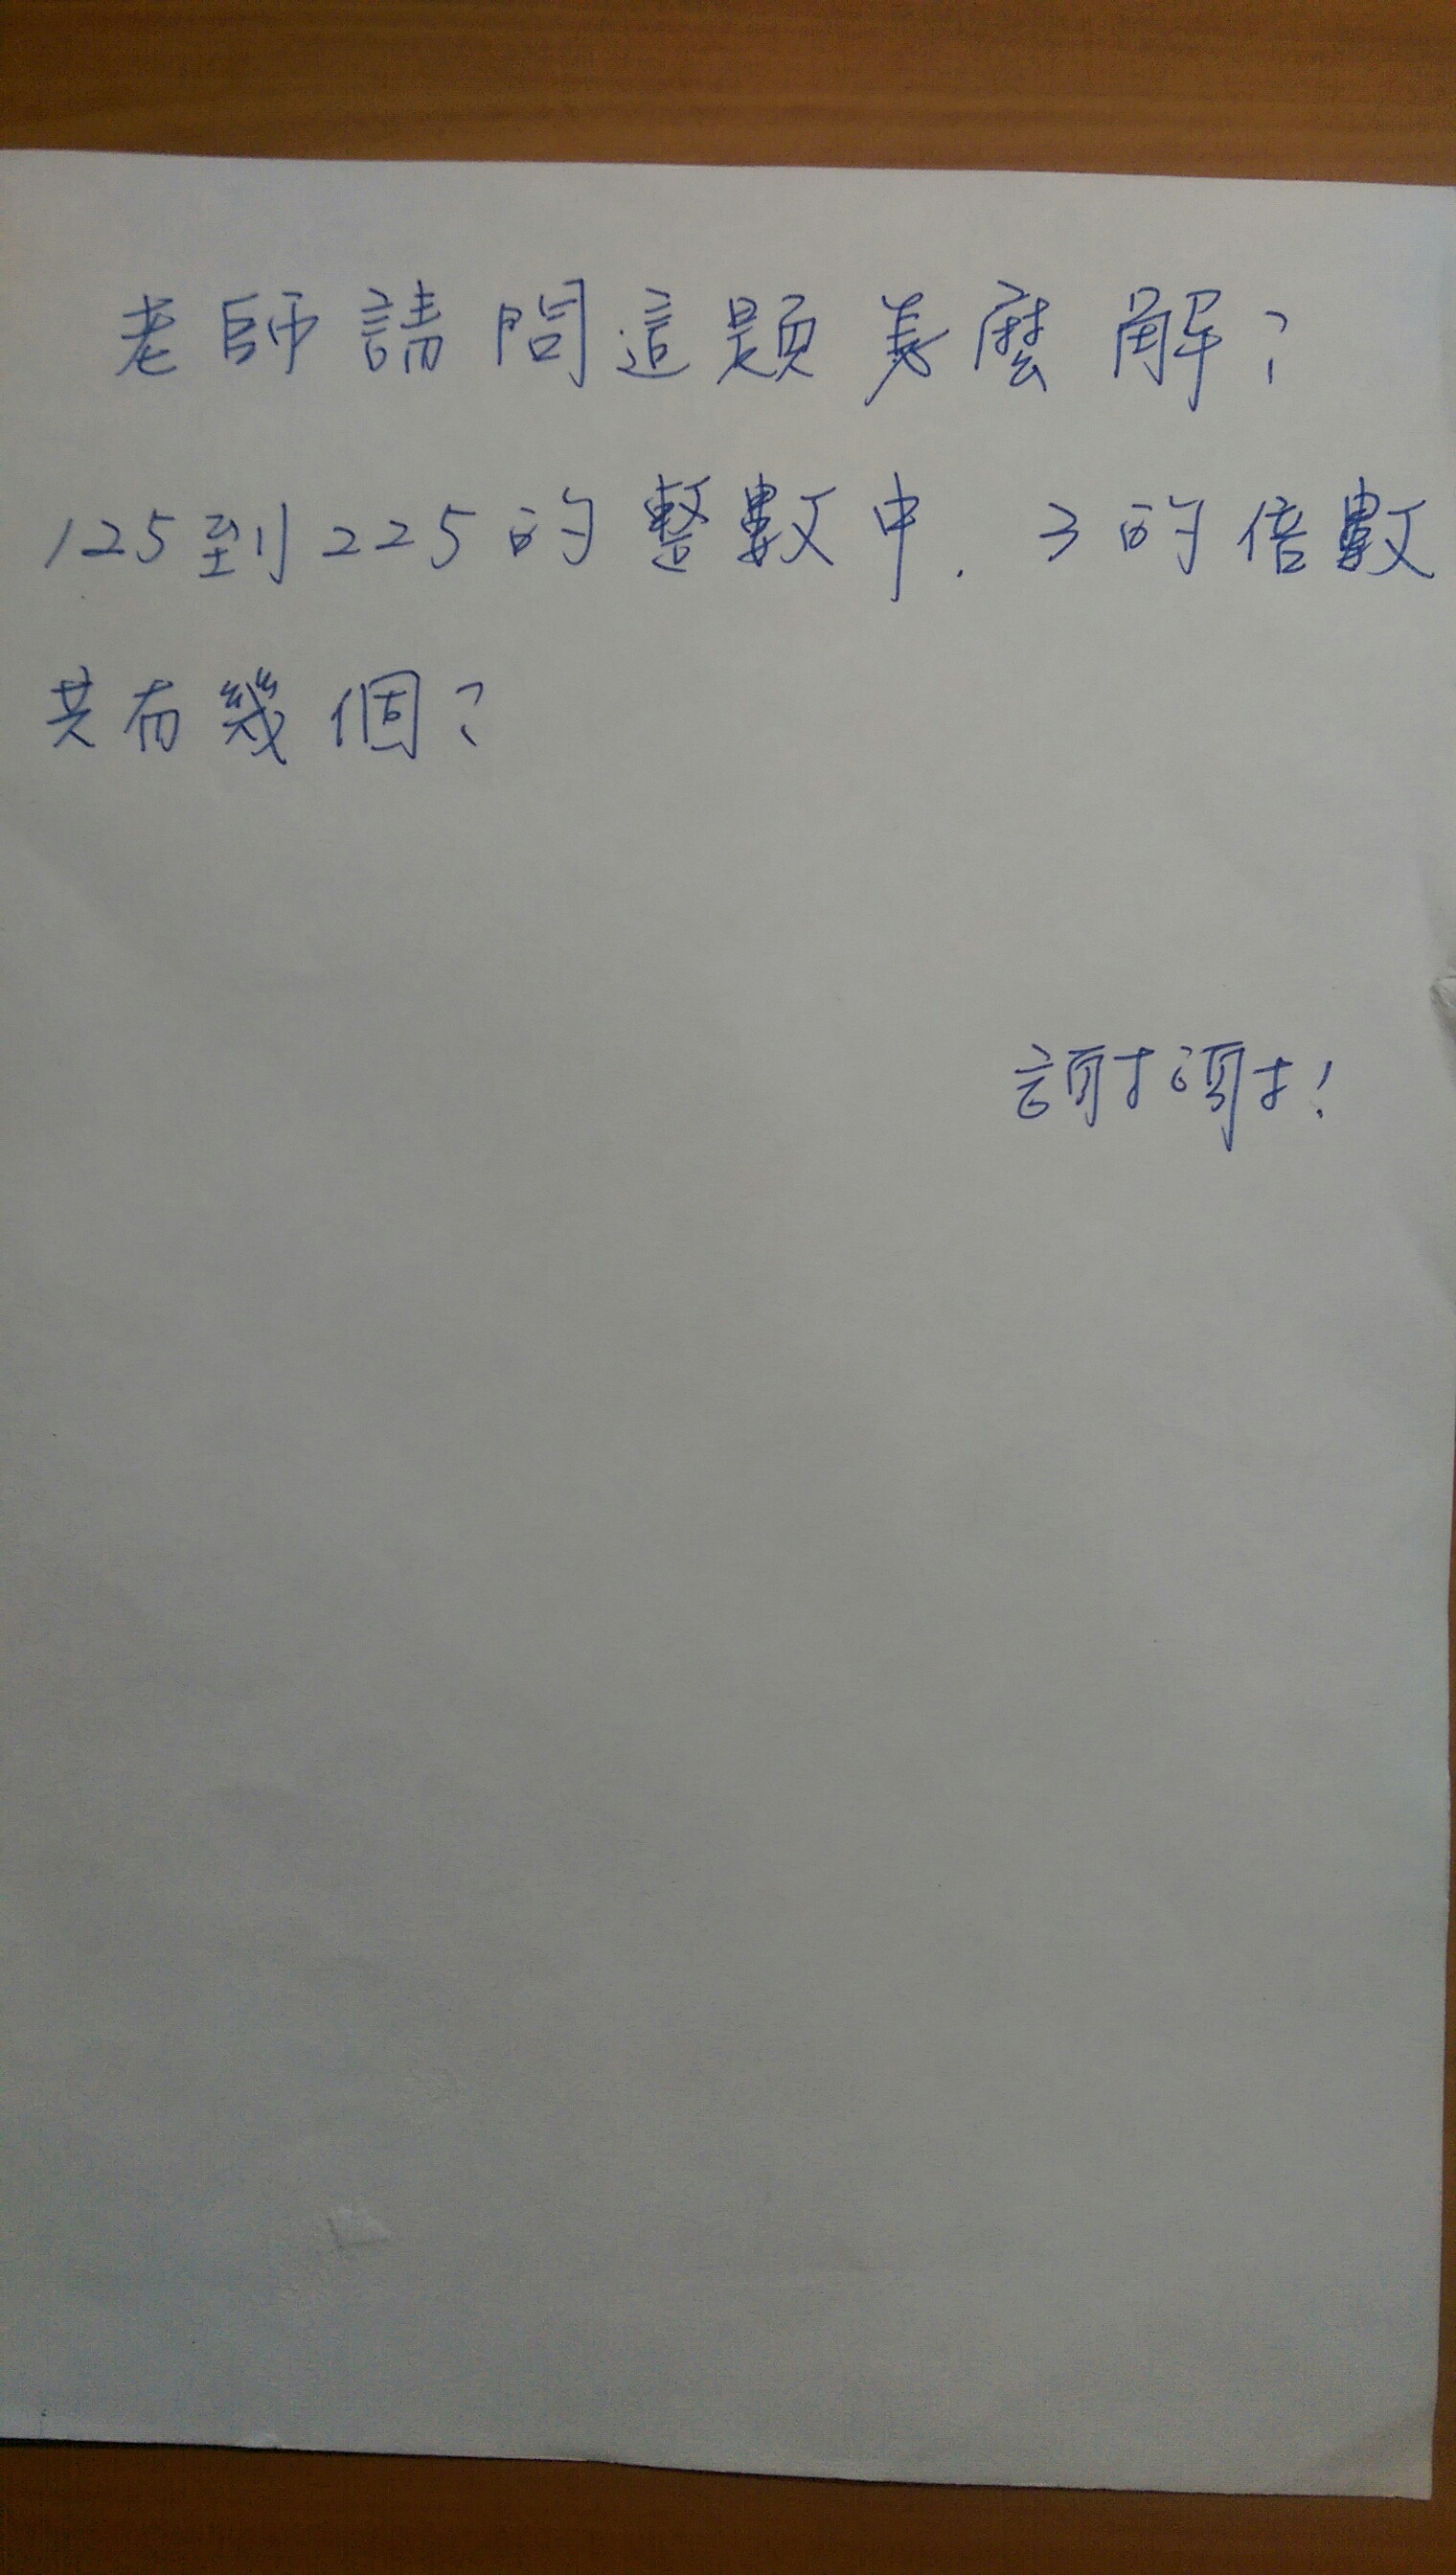 老師請問這題怎麼解?
125到225的整數中.3的倍數
共有幾個?
謝謝!